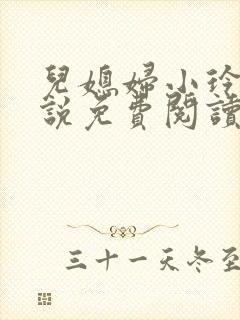 兒媳婦小玲
說免費閱讀
三十一天冬至